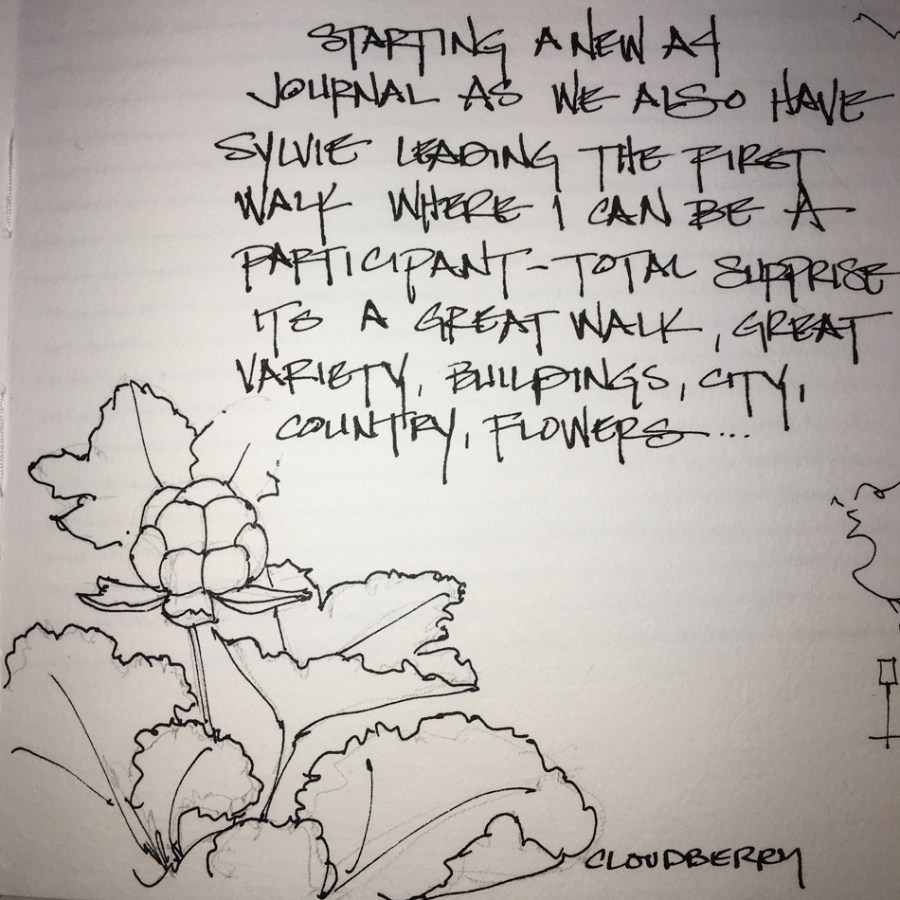 STARTING A NEW A4
JOURNAL AS WE ALSO HAVE
SYLVIE LEADING THE FIRST
WALK WHERE I CAN BE A
PARTICIPANT - TOTAL SURPRISE
ITS A GREAT WALK, GREAT
VARIETY, BUILDINGS, CITY,
COUNTRY, FLOWERS...
CLOUDBERRY